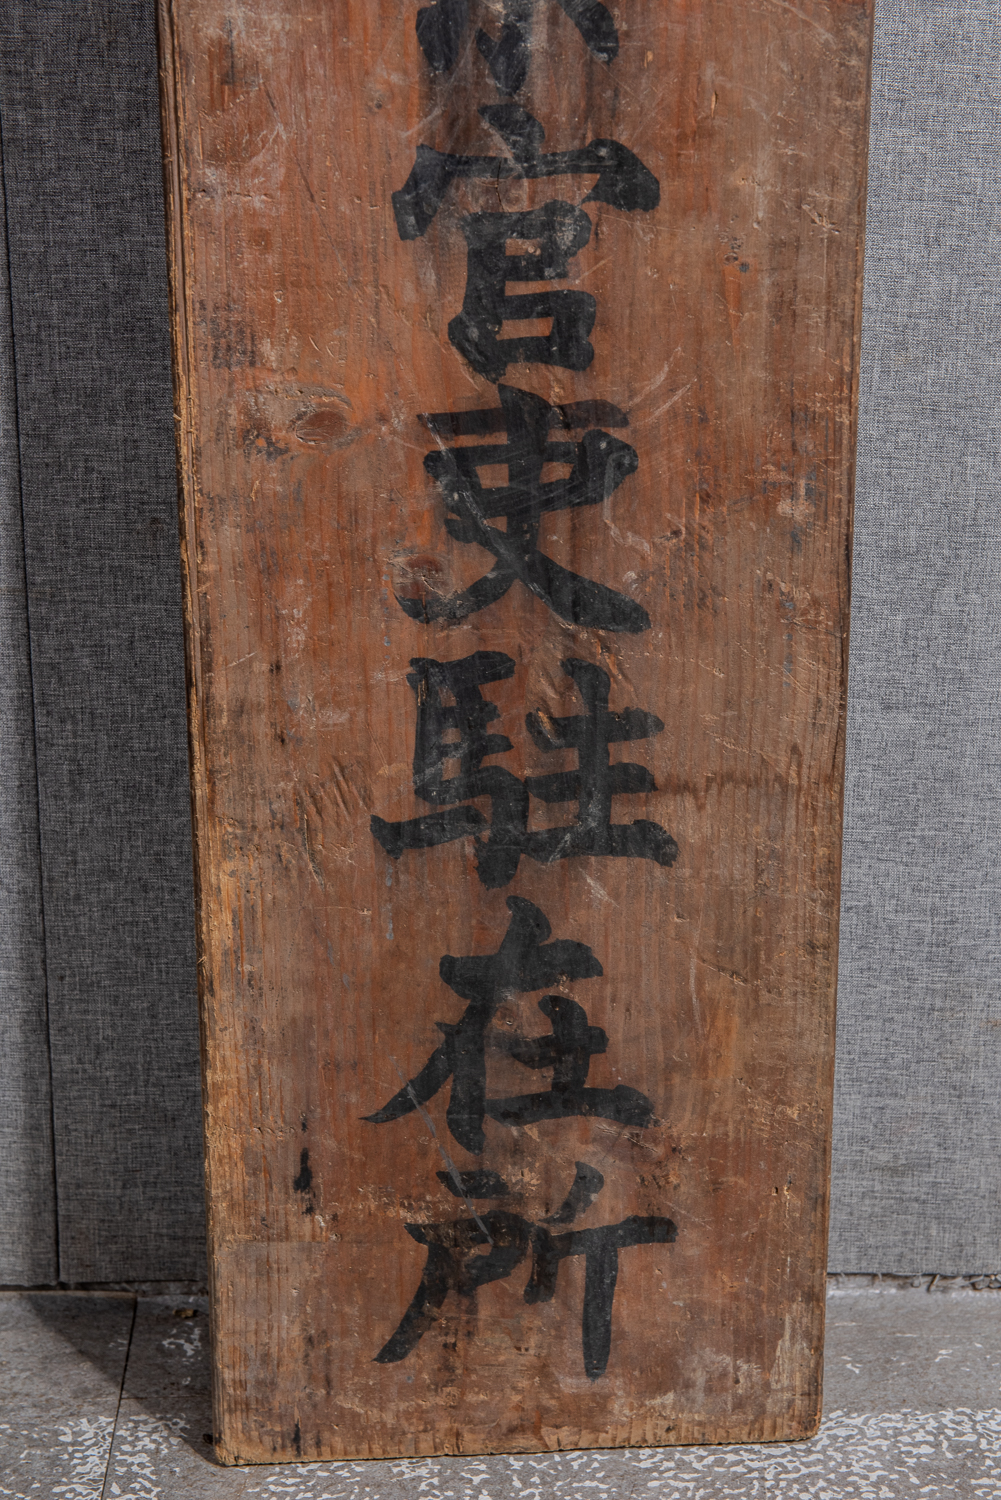 官吏駐在所